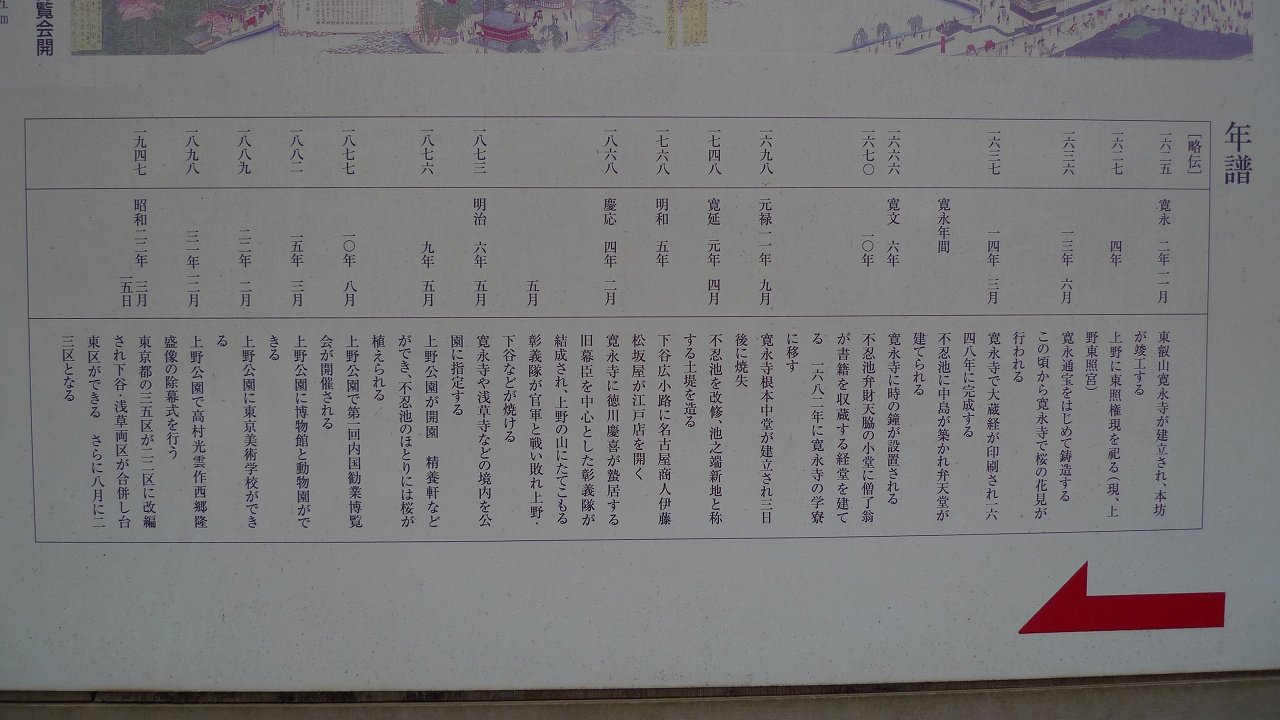 覧会開
年譜
[略伝]
一六二五
寛永 二年一一月
東叡山寛永寺が建立され、本坊
が竣工する
一六二七
四年
上野に東照権現を祀る(現、上
野東照宮)
一六三六
一三年 六月
寛永通宝をはじめて鋳造する
この頃から寛永寺で桜の花見が
行われる
一六三七
一四年 三月
寛永寺で大蔵経が印刷され一六
四八年に完成する
寛永年間
不忍池に中島が築かれ弁天堂が
建てられる
一六六六
寛文 六年
寛永寺に時の鐘が設置される
一六七〇
一〇年
不忍池弁財天脇の小堂に僧了翁
が書籍を収蔵する経堂を建て
る 一六八二年に寛永寺の学寮
に移す
一六九八
元禄一一年 九月
寛永寺根本中堂が建立され三日
後に焼失
一七四八
寛延 元年 四月
不忍池を改修、池之端新地と称
する土堤を造る
一七六八
明和 五年
下谷広小路に名古屋商人伊藤
松坂屋が江戸店を開く
一八六八
慶応 四年 二月
寛永寺に徳川慶喜が蟄居する
旧幕臣を中心とした彰義隊が
結成され、上野の山にたてこもる
五月
彰義隊が官軍と戦い敗れ上野・
下谷などが焼ける
一八七三
明治 六年 五月
寛永寺や浅草寺などの境内を公
園に指定する
一八七六
九年 五月
上野公園が開園 精養軒など
ができ、不忍池のほとりには桜が
植えられる
一八七七
一〇年 八月
上野公園で第一回内国勧業博覧
会が開催される
一八八二
一五年 三月
上野公園に博物館と動物園がで
きる
一八八九
二二年 二月
上野公園に東京美術学校ができ
る
一八九八
三一年一二月
上野公園で高村光雲作西郷隆
盛像の除幕式を行う
一九四七
昭和二二年 三月
一五日
東京都の三五区が二二区に改編
され下谷・浅草両区が合併し台
東区ができる さらに八月に二
三区となる